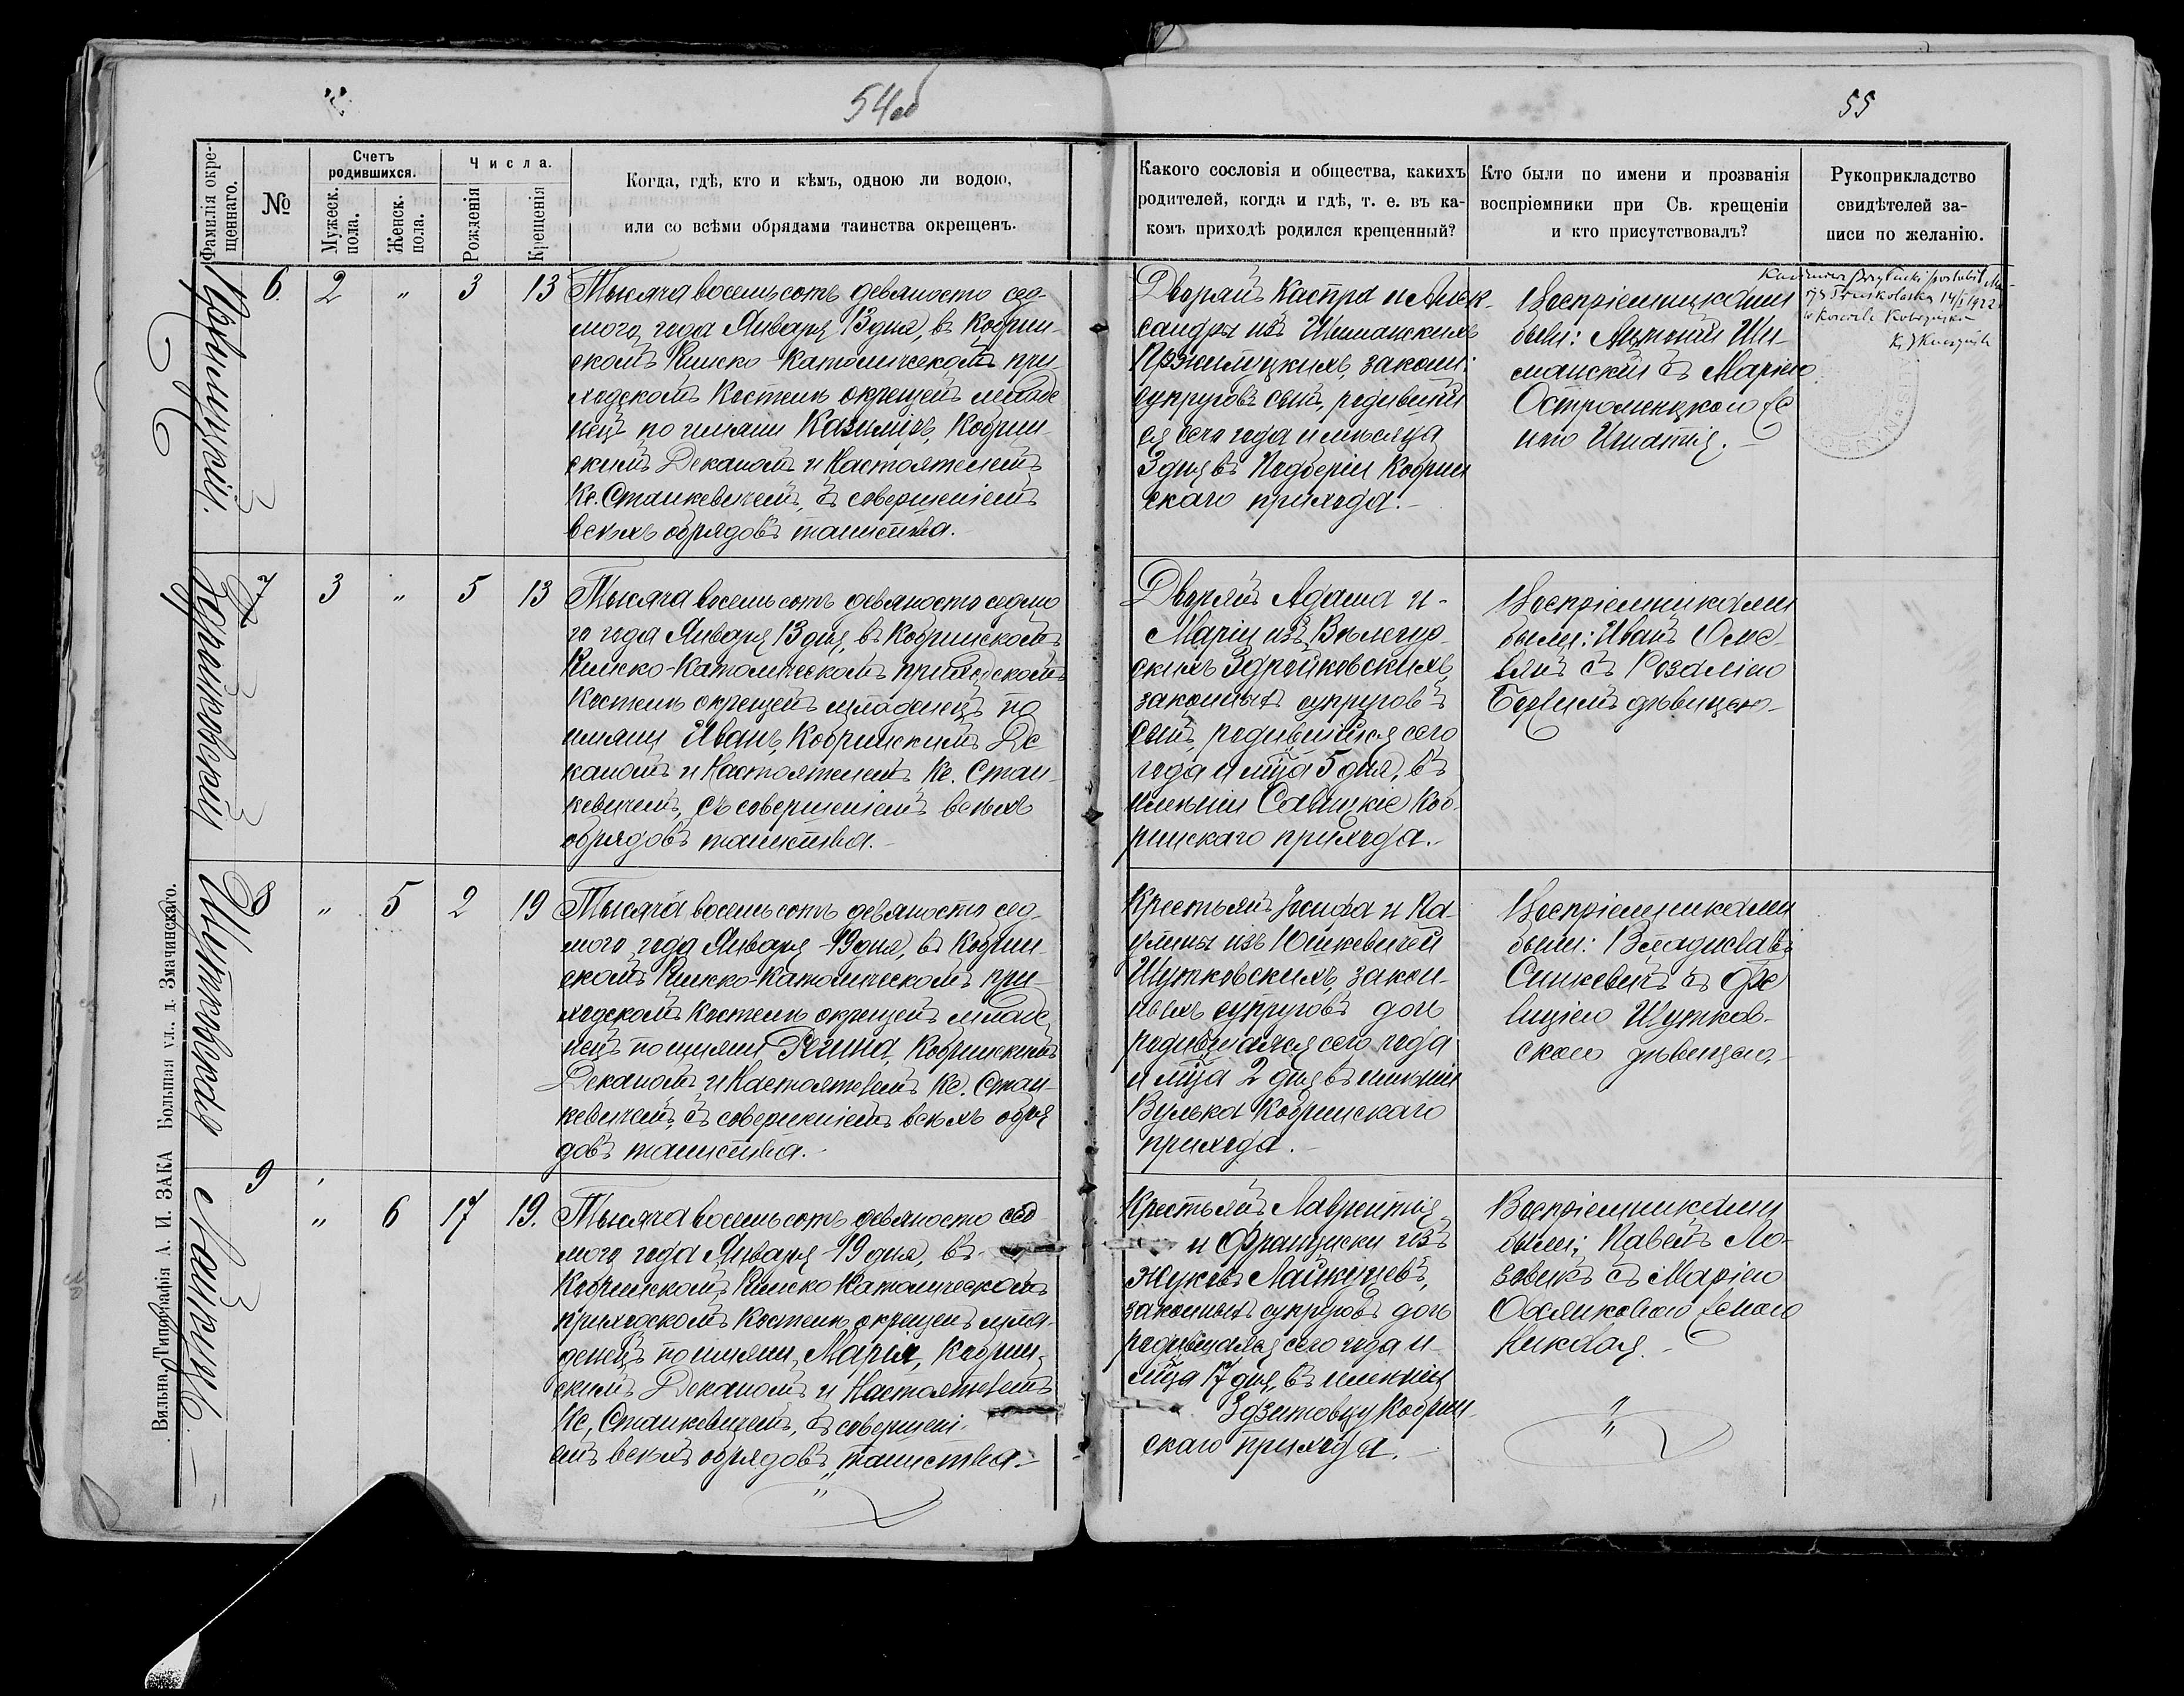 54об
55
Фамилія окрещеннаго.
№
Счетъ родившихся.
Мужеск. пола.
Женск. пола.
Числа.
Рожденія
Крещенія
Когда, гдѣ, кто и кѣмъ, одною ли водою,
или со всѣми обрядами таинства окрещенъ.
Какого сословія и общества, какихъ
родителей, когда и гдѣ, т. е. въ ка-
комъ приходѣ родился крещенный?
Кто были по имени и прозванія
воспріемники при Св. крещеніи
и кто присутствовалъ?
Рукоприкладство
свидѣтелей за-
писи по желанію.
6. 2 " 3 13
Тысяча восемьсотъ девяносто сед-
мого года Января 13 дня, въ Кобрин-
скомъ Римско-Католическомъ при-
ходскомъ Костелѣ окрещенъ младе
нецъ по имяни Казиміръ, Кобрин-
скимъ Деканомъ и Настоятелемъ
Кс. Станкевичемъ, съ совершеніемъ
всѣхъ обрядовъ таинства.
Дворянъ Каспра и Алек-
сандры изъ Шиманскихъ
закон.
супруговъ сынъ, родивший
ся сего года и мѣсяца
3 дня въ Кобрин
скаго прихода.
Воспріемниками
были: Антоній Ши-
манскій съ Маріею
14/I 1922
w Kościele
7 3 " 5 13
Здройковскій
Тысяча восемьсотъ девяносто седмо
го года Января 13 дня, въ Кобринскомъ
Римско-Католическомъ приходскомъ
Костелѣ окрещенъ младенецъ по
имяни Иванъ, Кобринскимъ Де
каномъ и Настоятелемъ Кс. Стан-
кевичемъ, съ совершеніемъ всѣхъ
обрядовъ таинства.
Дворянъ Адама и
Маріи изъ
скихъ Здройковскихъ,
законныхъ супруговъ
сынъ, родившійся сего
года и мца 5 дня, въ
имѣніи Коб-
ринскаго прихода.
Воспріемниками
были: Иванъ
съ Розаліею
дѣвицею
8 " 5 2 19
Шутковская
Тысяча восемьсотъ девяносто сед-
мого года Января 19 дня, въ Кобрин-
скомъ Римско-Католическомъ при-
ходскомъ Костелѣ окрещенъ младе
нецъ по имяни Регина, Кобринскимъ
Деканомъ и Настоятелемъ Кс. Стан-
кевичемъ, съ совершеніемъ всѣхъ обря
довъ таинства.
Крестьянъ Іосифа и Па-
улины изъ Юшкевичей
Шутковскихъ, закон-
ныхъ супруговъ дочь
родившаяся сего года
и мца 2 дня въ имѣніи
Вулька Кобринскаго
прихода.
Воспріемниками
были: Владиславъ
Синкевичъ съ Фе
лиціею Шутков-
скою дѣвицею.
9 " 6 17 19.
Тысяча восемьсотъ девяносто сед
мого года Января 19 дня, въ
Кобринскомъ Римско Католическомъ
приходскомъ Костелѣ окрещенъ мла-
денецъ по имяни Марія, Кобрин-
скимъ Деканомъ и Настоятелемъ
Кс. Станкевичемъ, съ совершені-
емъ всѣхъ обрядовъ таинства.
Крестьянъ Лаврентія
и Франциски изъ
законныхъ супруговъ дочь
родившаяся сего года и
мца 17 дня, въ имѣніи
Кобрин
скаго прихода.
Воспріемниками
были: Павелъ Ло-
съ Маріею
женою
Николая.
Вильна, Типографія А. И. ЗАКА Большая ул., д. Змачинскаго.